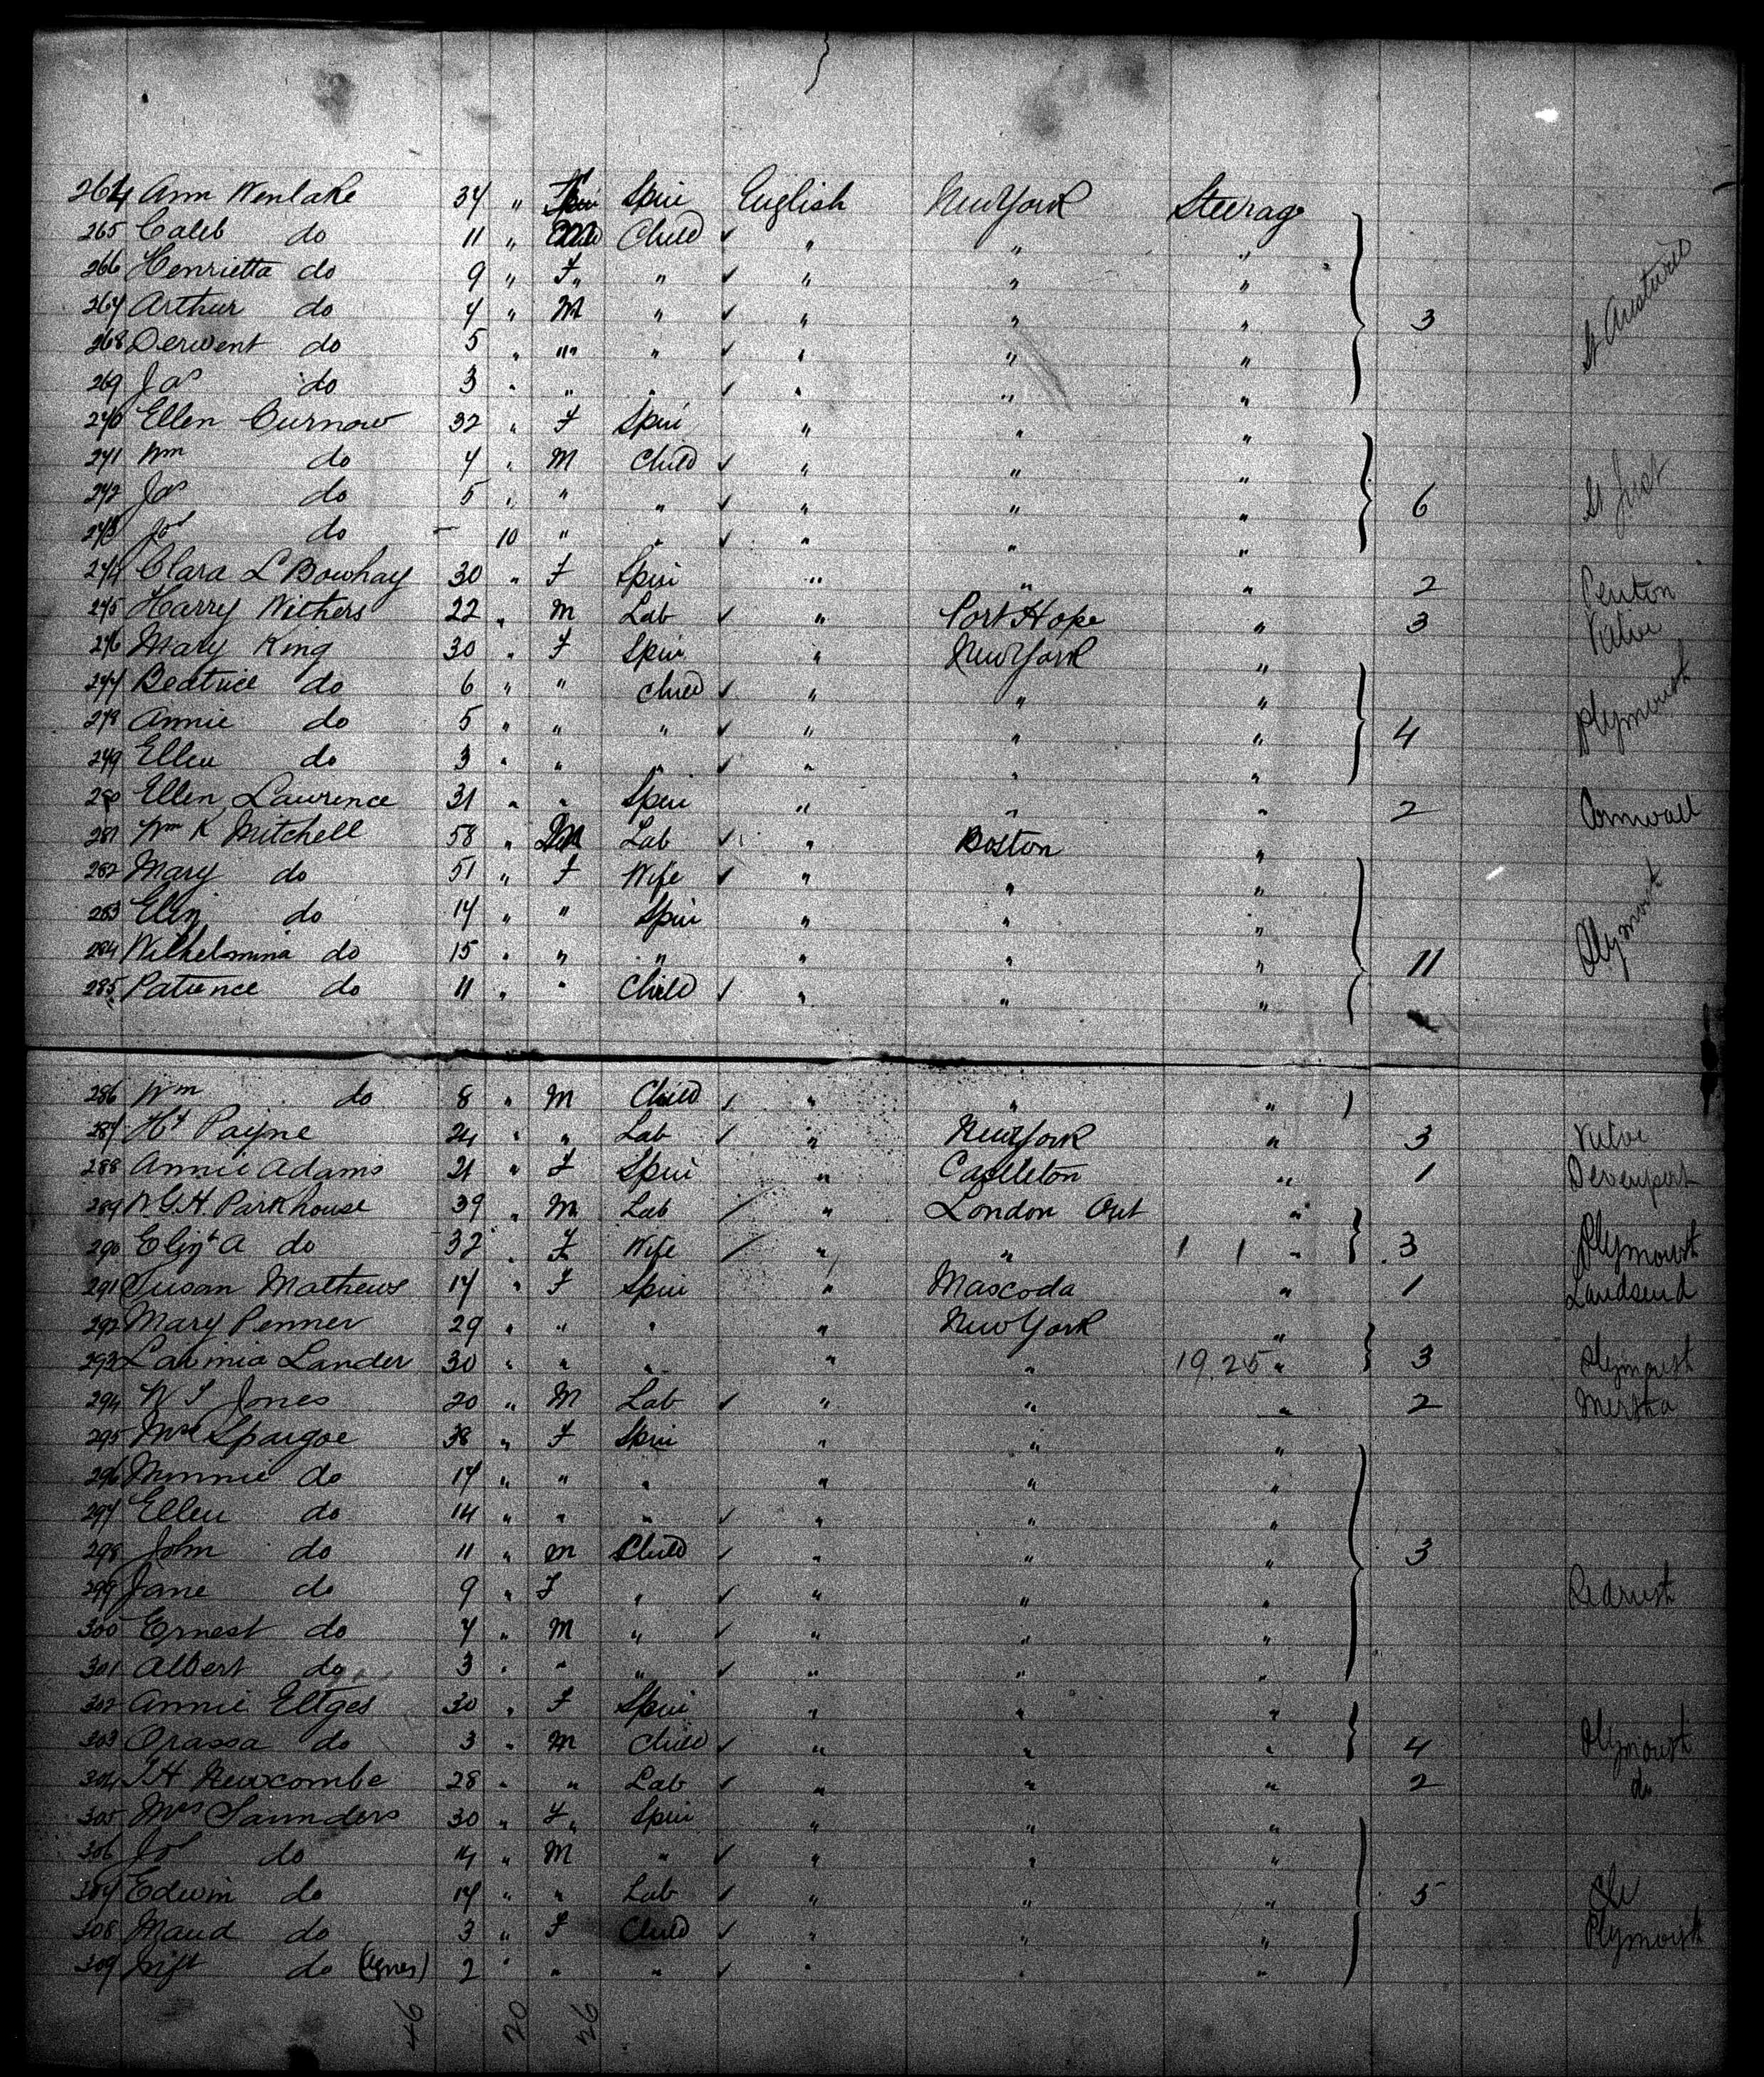 264 Ann Wenlake 34 " F Spin English New York Steerage
265 Caleb do 11 " M Child ✓ " " "
266 Henrietta do 9 " F " " ✓ " " "
267 Arthur do 7 " M " ✓ " " " 3
268 Derwent do 5 " " " ✓ " " "
269 Jas do 3 " " " ✓ " " "
270 Ellen Curnow 32 " F Spin " " "
271 Wm do 7 " M Child ✓ " " "
272 Jas do 5 " " " ✓ " " " 6 St Just
273 Jos do - 10 " " ✓ " " "
274 Clara L Bowhay 30 " F Spin " " " 2 Penton
275 Harry Withers 22 " M Lab ✓ " Port Hope " 3
276 Mary King 30 " F Spin " New York "
277 Beatrice do 6 " " Child ✓ " " " Plymouth
278 Annie do 5 " " " ✓ " " " 4
279 Ellen do 3 " " " ✓ " " "
280 Ellen Lawrence 31 " " Spin " " " 2 Cornwall
281 Wm K Mitchell 58 " M Lab ✓ " Boston "
282 Mary do 51 " F Wife ✓ " " "
283 Eliz do 17 " " Spin " " " Plymouth
284 Wilhelmina do 15 " " " " " " 11
285 Patience do 11 " " Child ✓ " " "
286 Wm do 8 " M Child ✓ " " "
287 Hy Payne 24 " " Lab ✓ " New York " 3
288 Annie Adams 21 " F Spin " Castleton " 1 Devenport
289 W.G.H. Parkhouse 39 " M Lab ✓ " London Ont "
290 Elizth A do 32 " F Wife ✓ " " 1 1 " 3 Plymouth
291 Susan Mathews 17 " F Spin " Mascoda " 1 Landsend
292 Mary Penner 29 " " " " New York "
293 Lavinia Lander 30 " " " " " 19.25 " 3 Plymouth
294 W S Jones 20 " M Lab ✓ " " " 2
295 Mrs Spargoe 38 " F Spin " " "
296 Minnie do 17 " " " " " "
297 Ellen do 14 " " " ✓ " " "
298 John do 11 " M Child ✓ " " " 3
299 Jane do 9 " F " ✓ " " " Redruth
300 Ernest do 7 " M " ✓ " " "
301 Albert do 3 " " " ✓ " " "
302 Annie Eltges 30 " F Spin " " "
303 Orassa do 3 " M Child ✓ " " " 4 Plymouth
304 J H Newcombe 28 " " Lab ✓ " " " 2 do
305 Mrs Saunders 30 " F " Spin " " "
306 Jos do 14 " M " ✓ " " "
307 Edwin do 17 " " Lab ✓ " " " 5
308 Maud do 3 " F Child ✓ " " " Plymouth
309 Inft do (Agnes) 2 " " " ✓ " " "
46 20 26